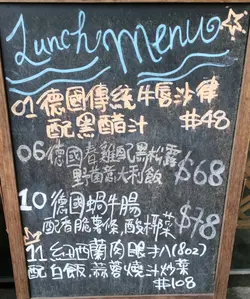 Lunch Menu
01 德國傳統牛唇沙律
配黑醋汁 $48
06 德國春雞配黑松露
野菌意大利飯 $68
10 德國蝸牛腸
配香脆薯條,酸椰菜 $78
11 紐西蘭肉眼扒(8oz)
配白飯,蒜蓉燒汁炒菜
$108